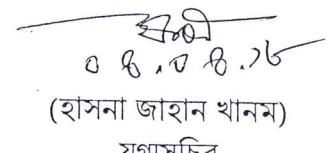 ০৪.০৪.১৮
(হাসনা জাহান খানম)
যুগ্মসচিব